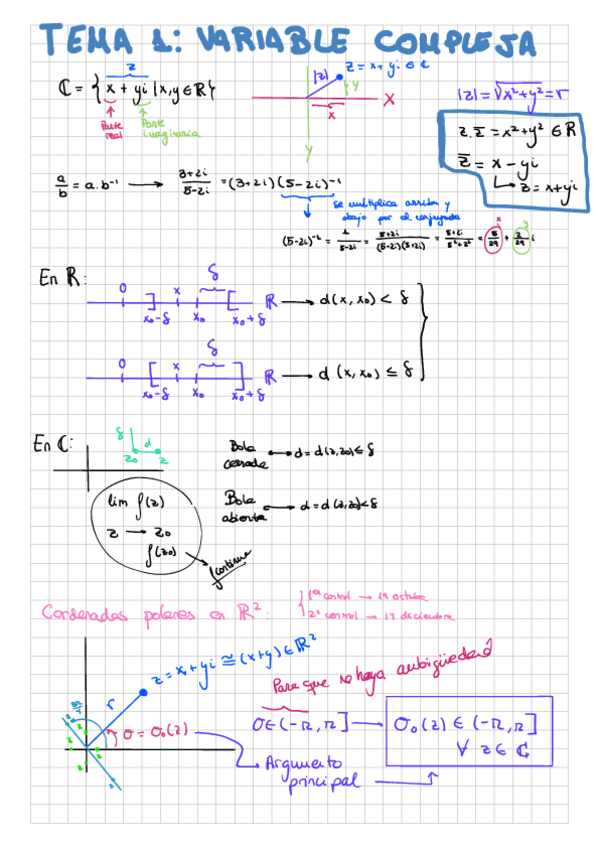 TEMA 1: VARIABLE COMPLEJA
z
ℂ = { x + yi / x,y ∈ ℝ}
Parte real
Parte imaginaria
|z|
z = x + yi ∈ ℂ
y
x
X
Y
|z| = √x²+y² = r
z.z̅ = x²+y² ∈ ℝ
z̅ = x - yi
↳ z = x+yi
a/b = a.b⁻¹ → 3+2i/5-2i = (3+2i)(5-2i)⁻¹
se multiplica arriba y
abajo por el conjugado
x
y
(5-2i)⁻¹ = 1/5-2i = 5+2i/(5-2i)(5+2i) = 5+2i/5²+2² = 5/29 + 2/29 i
En ℝ:
δ
0 x
] [ ℝ → d(x,x₀) < δ
x₀-δ x₀ x₀+δ
δ
0 x
[ ] ℝ → d(x,x₀) ≤ δ
x₀-δ x₀ x₀+δ
En ℂ:
δ d
z₀ z
Bola cerrada ↔ d = d(z,z₀) ≤ δ
lim f(z)
z → z₀
f(z₀)
f continua
Bola abierta ↔ d = d(z,z₀) < δ
Cordenadas polares en ℝ²:
1er control → 29 octubre
2º control → 17 diciembre
z = x + yi ≅ (x+y) ∈ ℝ²
r
Para que no haya ambigüedad
σ = σ₀(z)
σ ∈ (-π,π] → σ₀(z) ∈ (-π,π]
∀ z ∈ ℂ
Argumento
principal